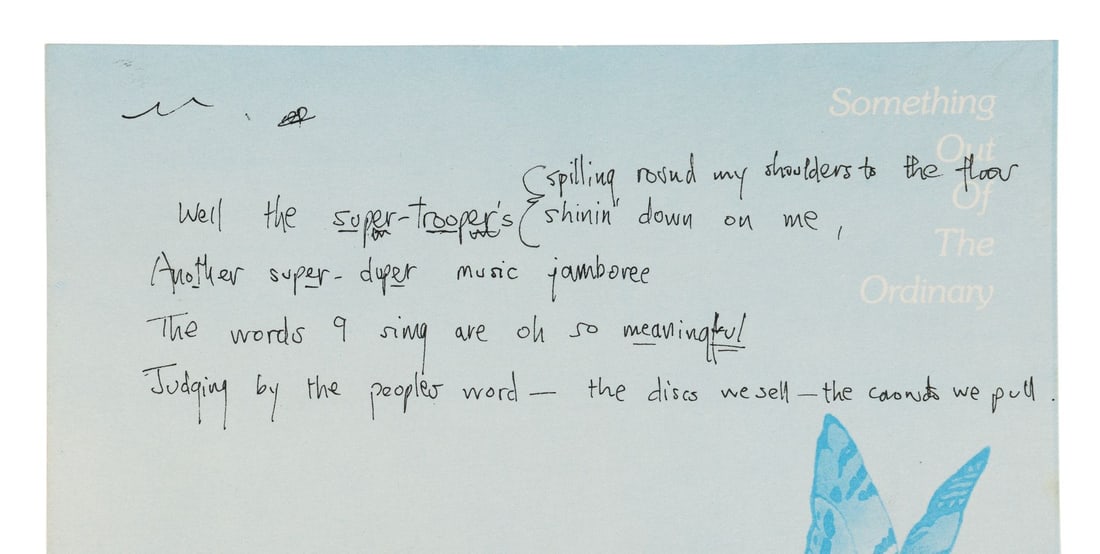 Something
Out
Of
The
Ordinary
spilling round my shoulders to the floor
Well the super-trooper's shinin' down on me,
Another super-duper music jamboree
The words I sing are oh so meaningful
Judging by the peoples word — the discs we sell — the crowds we pull.